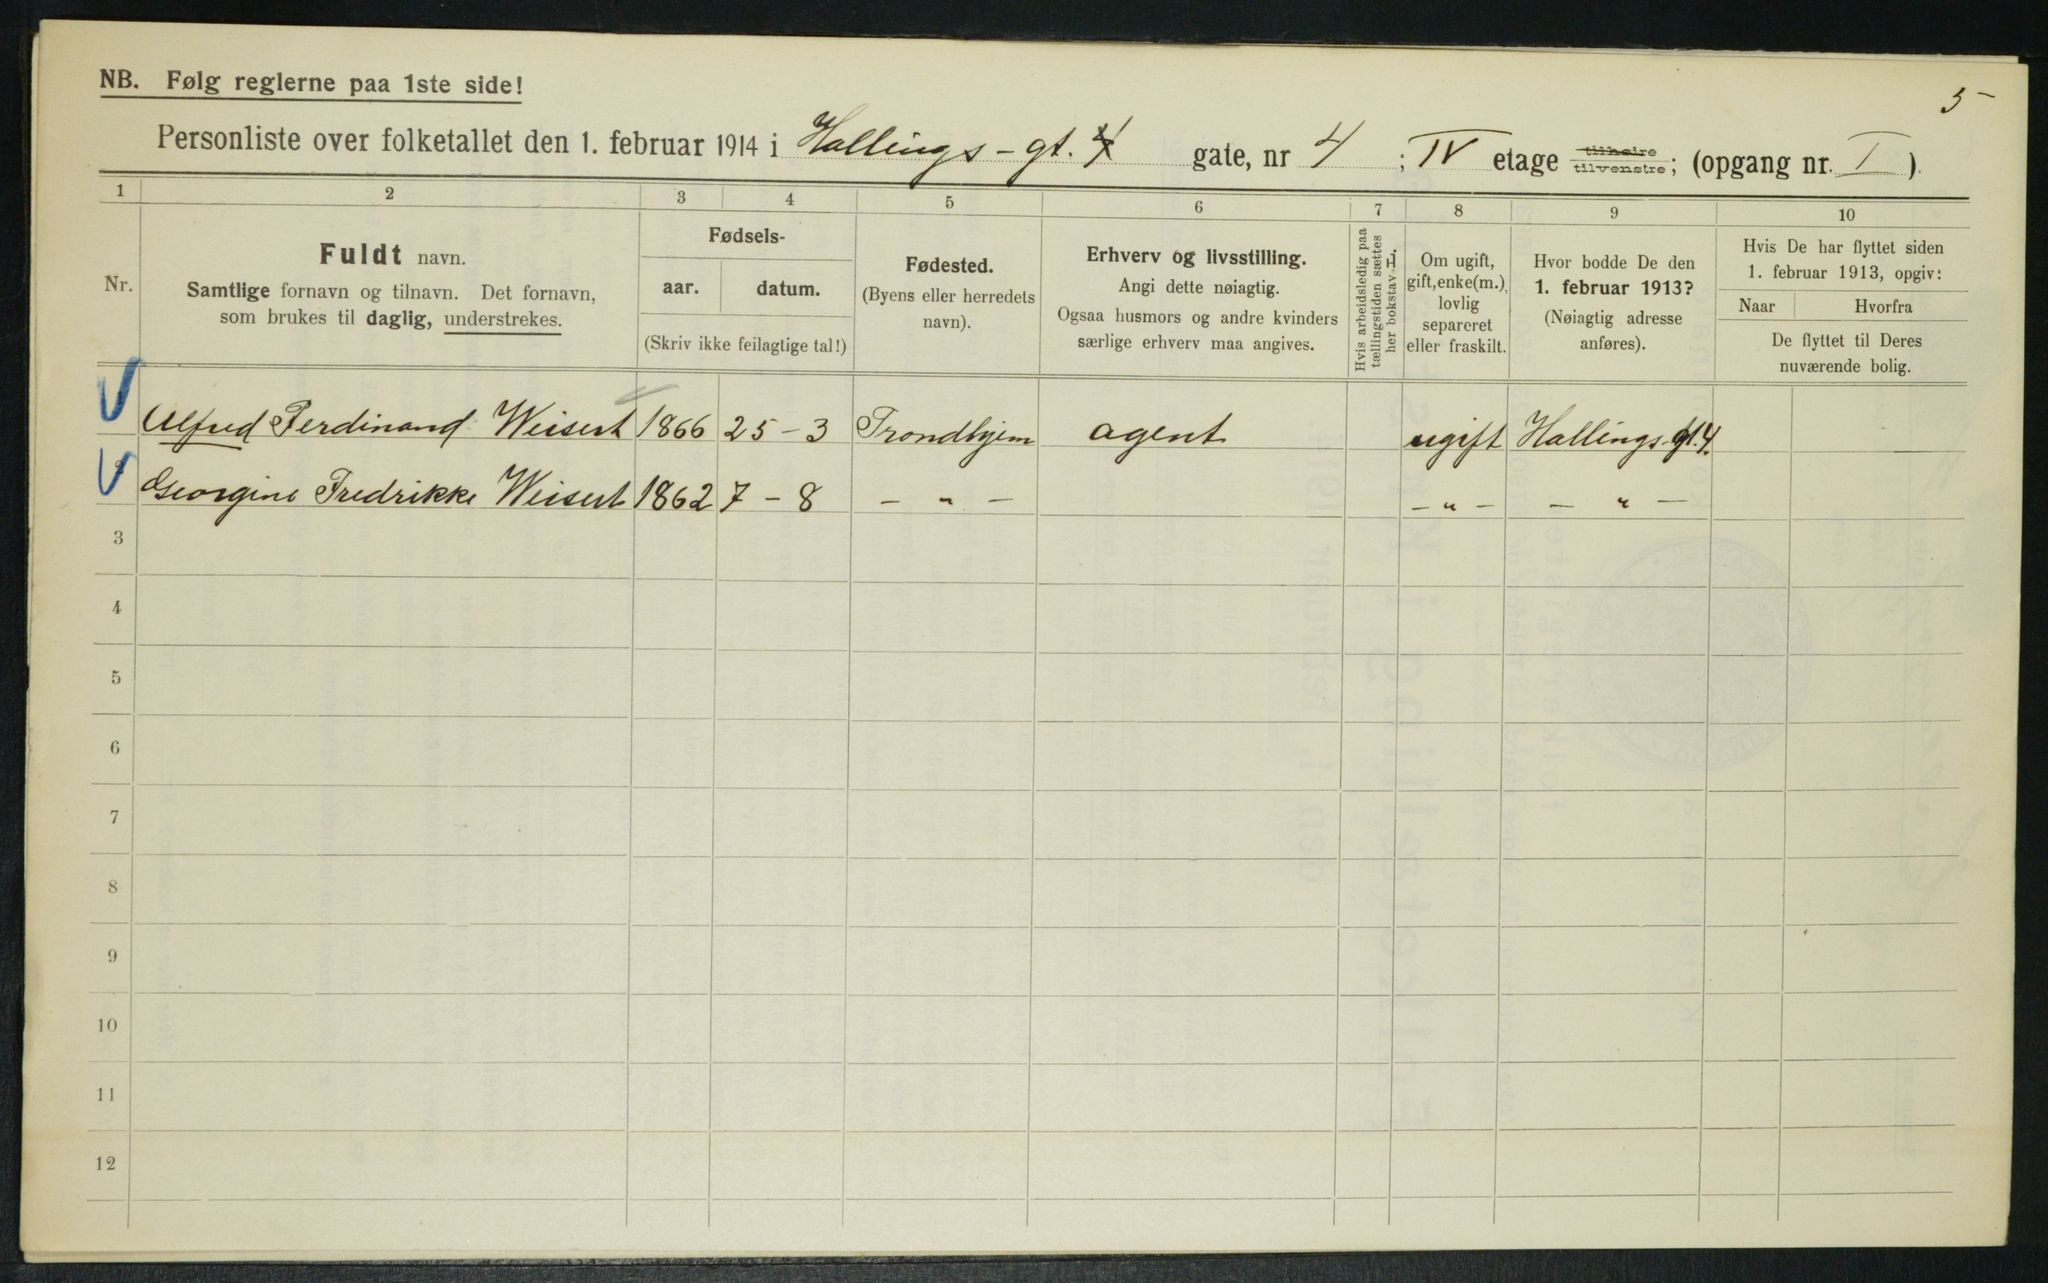 5
NB. Følg reglerne paa 1ste side!
Personliste over folketallet den 1. februar 1914 i Hallings-gt. 4 gate, nr 4 ; IV etage tilhøire tilvenstre; (opgang nr. I ).
1 2 3 4 5 6 7 8 9 10
Nr.
Fuldt navn.
Samtlige fornavn og tilnavn. Det fornavn,
som brukes til daglig, understrekes.
Fødsels-
aar. datum.
(Skriv ikke feilagtige tal!)
Fødested.
(Byens eller herredets
navn).
Erhverv og livsstilling.
Angi dette nøiagtig.
Ogsaa husmors og andre kvinders
særlige erhverv maa angives.
Hvis arbeidsledig paa
tællingstiden sættes
her bokstav L.
Om ugift,
gift, enke(m.),
lovlig
separeret
eller fraskilt.
Hvor bodde De den
1. februar 1913?
(Nøiagtig adresse
anføres).
Hvis De har flyttet siden
1. februar 1913, opgiv:
Naar Hvorfra
De flyttet til Deres
nuværende bolig.
Alfred Ferdinand Weisert 1866 25-3 Trondhjem agent ugift Hallings-gt. 4.
Georgine Fredrikke Weisert 1862 7-8 - " - - " - - " -
3
4
5
6
7
8
9
10
11
12